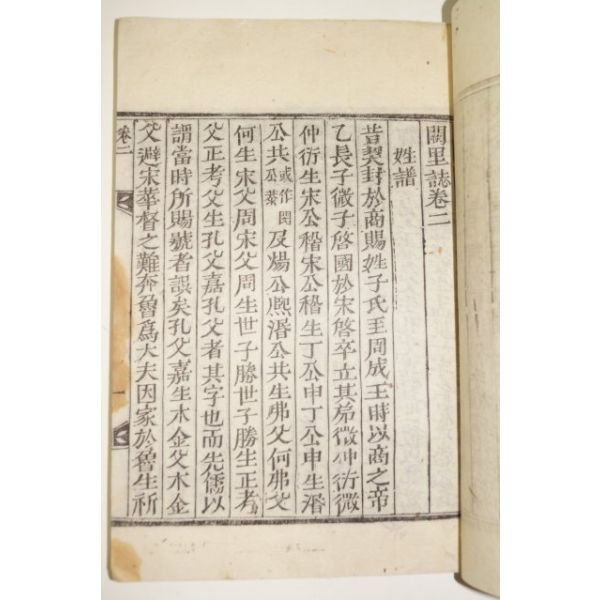 闕里誌卷二
姓譜
昔契封於商賜姓子氏至周成王時以商之帝
乙長子微子啓國於宋啓卒立其弟微仲衍微
仲衍生宋公稽宋公稽生丁公申丁公申生湣
公共或作閔公蒙及煬公熈湣公共生弗父何弗父
何生宋父周宋父周生世子勝世子勝生正考
父正考父生孔父嘉孔父者其字也而先儒以
謂當時所賜號者誤矣孔父嘉生木金父木金
父避宋華督之難奔魯爲大夫因家於魯生祈
卷二